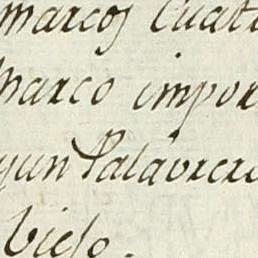 marcos Cuat
marco impor
yun Palavrer
Viejo.